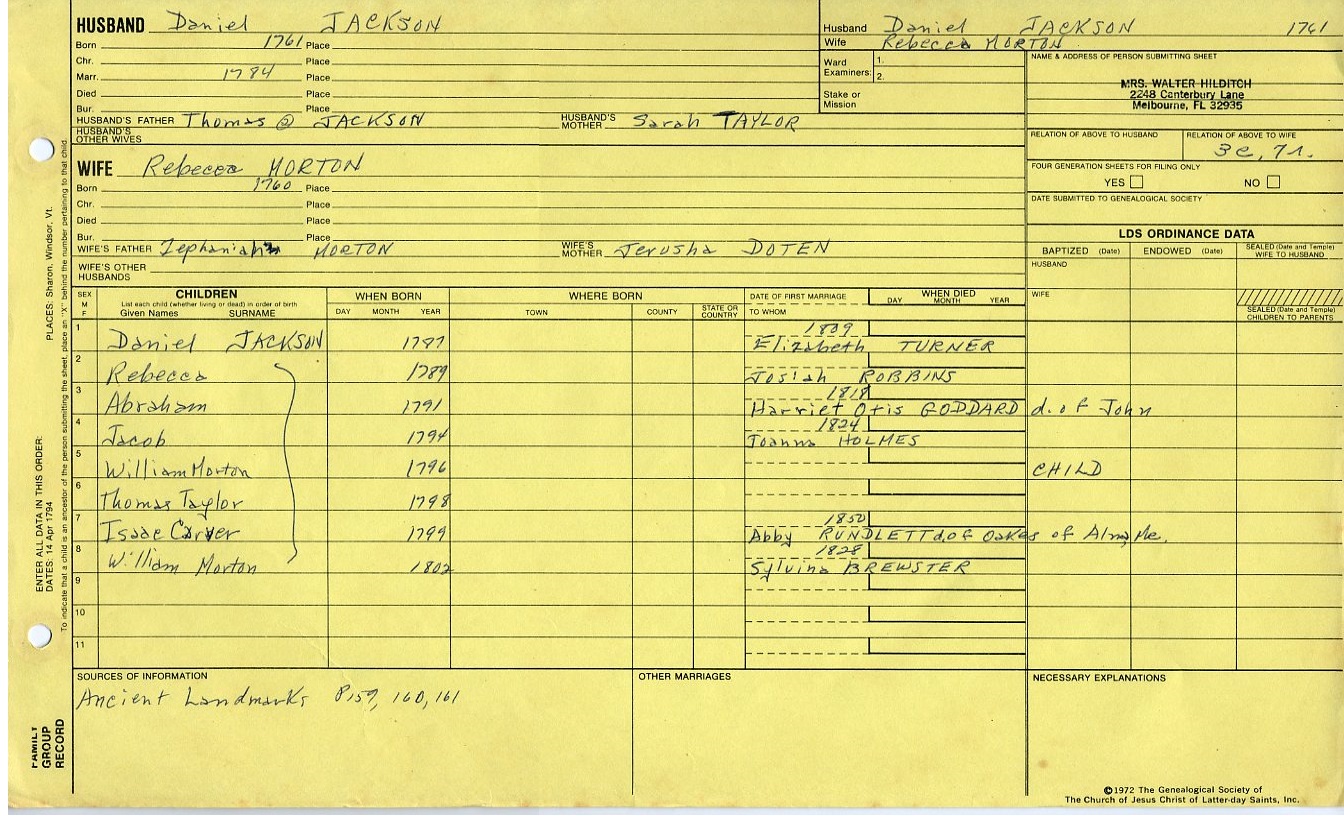 HUSBAND Daniel JACKSON
Born 1761 Place
Chr. Place
Marr. 1784 Place
Died Place
Bur. Place
HUSBAND'S FATHER Thomas @ JACKSON HUSBAND'S MOTHER Sarah TAYLOR
HUSBAND'S OTHER WIVES
Husband Daniel JACKSON 1761
Wife Rebecca MORTON
Ward Examiners: 1.
2.
Stake or Mission
NAME & ADDRESS OF PERSON SUBMITTING SHEET
MRS. WALTER HILDITCH
2248 Canterbury Lane
Melbourne, FL 32935
RELATION OF ABOVE TO HUSBAND RELATION OF ABOVE TO WIFE
3c, 7r.
FOUR GENERATION SHEETS FOR FILING ONLY
YES NO
DATE SUBMITTED TO GENEALOGICAL SOCIETY
WIFE Rebecca MORTON
Born 1760 Place
Chr. Place
Died Place
Bur. Place
WIFE'S FATHER Zephaniah MORTON WIFE'S MOTHER Jerusha DOTEN
WIFE'S OTHER HUSBANDS
LDS ORDINANCE DATA
BAPTIZED (Date) ENDOWED (Date) SEALED (Date and Temple) WIFE TO HUSBAND
HUSBAND
WIFE
SEALED (Date and Temple) CHILDREN TO PARENTS
SEX M F CHILDREN WHEN BORN WHERE BORN DATE OF FIRST MARRIAGE WHEN DIED
List each child (whether living or dead) in order of birth
Given Names SURNAME DAY MONTH YEAR TOWN COUNTY STATE OR COUNTRY TO WHOM DAY MONTH YEAR
1 1809
Daniel JACKSON 1787 Elizabeth TURNER
2
Rebecca 1789 Josiah ROBBINS
3 1818
Abraham 1791 Harriet Otis GODDARD d. of John
4 1824
Jacob 1794 Joanna HOLMES
5
William Morton 1796 CHILD
6
Thomas Taylor 1798
7 1850
Isaac Carver 1799 Abby RUNDLETT d. of Oakes of Alna, Me.
8 1828
William Morton 1802 Sylvina BREWSTER
9
10
11
SOURCES OF INFORMATION
Ancient Landmarks P159, 160, 161
OTHER MARRIAGES
NECESSARY EXPLANATIONS
©1972 The Genealogical Society of
The Church of Jesus Christ of Latter-day Saints, Inc.
PLACES: Sharon, Windsor, Vt.
To indicate that a child is an ancestor of the person submitting the sheet, place an "X" behind the number pertaining to that child.
ENTER ALL DATA IN THIS ORDER:
DATES: 14 Apr 1794
FAMILY
GROUP
RECORD